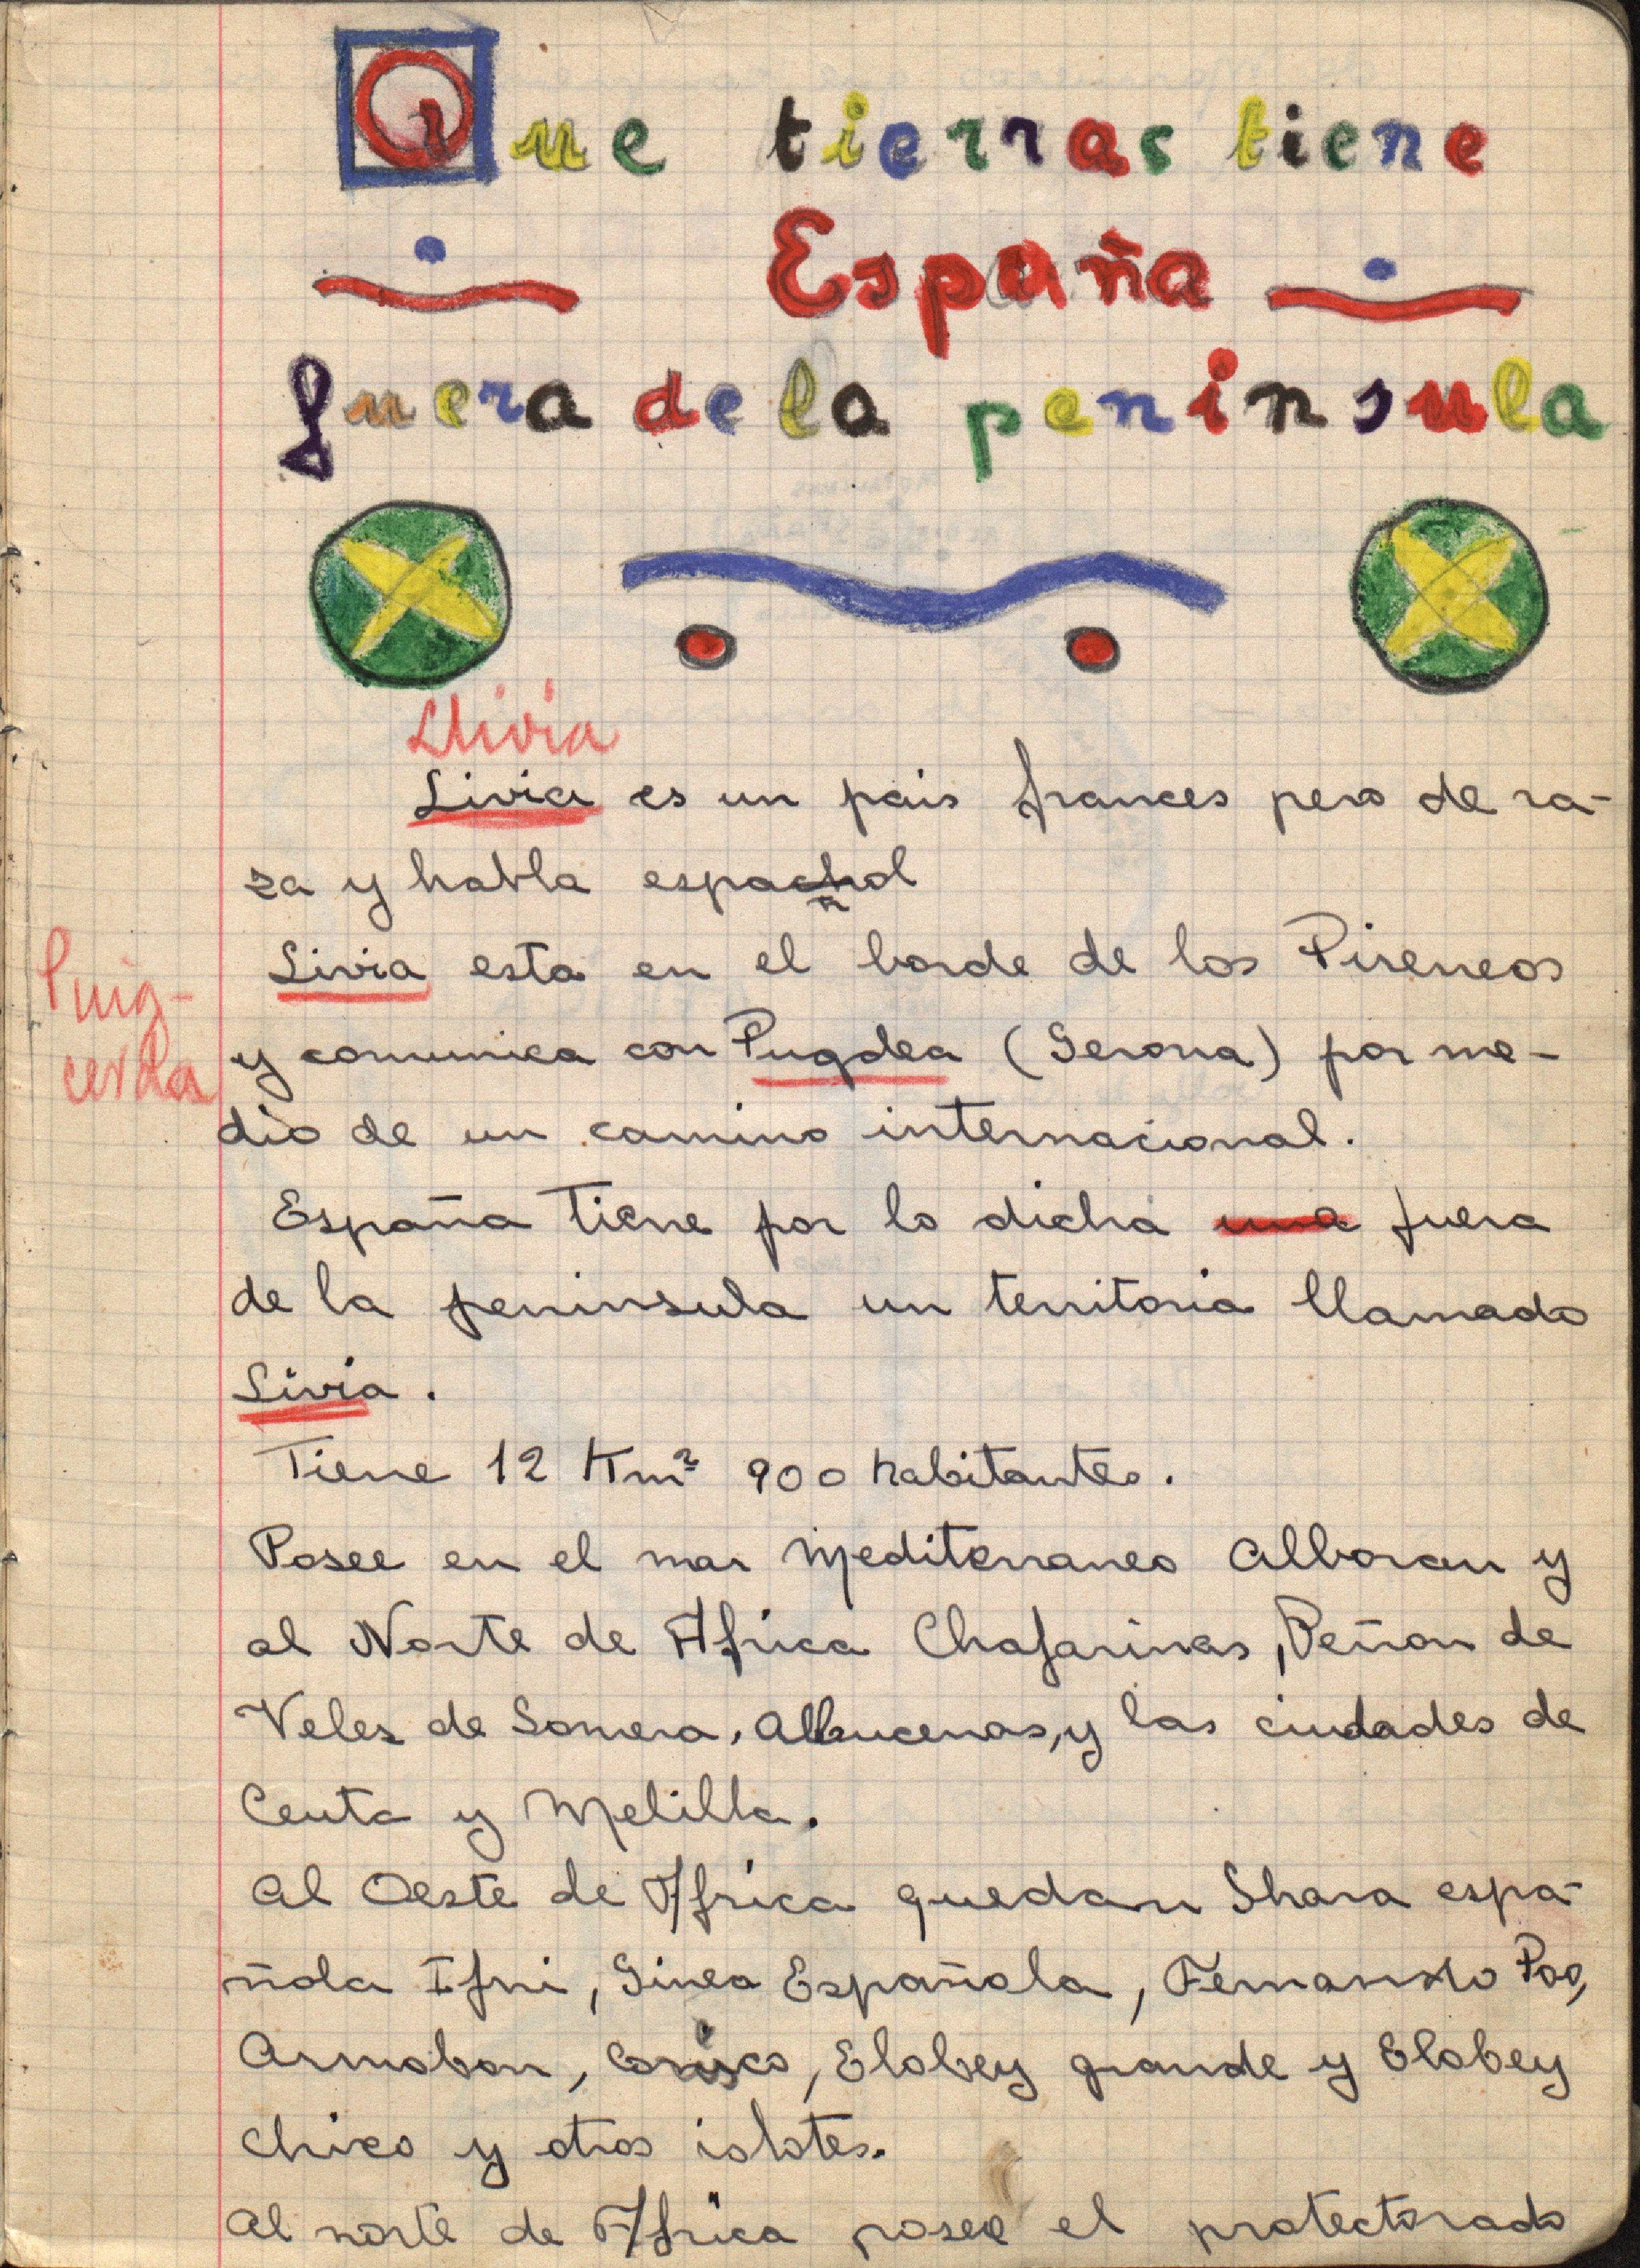 Que tierras tiene
España
fuera de la peninsula
Llivia
Livia es un pais frances pero de ra-
za y habla espachol
ñ
Livia esta en el borde de los Pireneos
Puig-
cerda
y comunica con Pugdea (Gerona) por me-
dio de un camino internacional.
España Tiene por lo dicha una fuera
de la peninsula un territoria llamado
Livia.
Tiene 12 Km² 900 habitantes.
Posee en el mar Mediterraneo Alboran y
al Norte de Africa Chafarinas, Peñon de
Velez de Gomera, Alhucenas, y las ciudades de
Ceuta y Melilla.
Al Oeste de Africa quedan Shara espa-
ñola Ifni, Ginea Española, Fernando Poo,
Annobon, Corisco, Elobey grande y Elobey
chico y otros islotes.
Al norte de Africa posee el protectorado